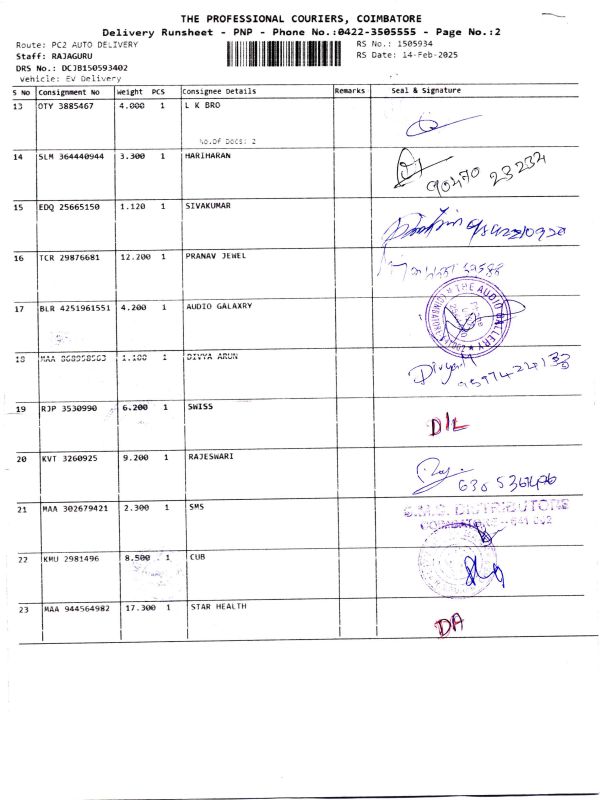 THE PROFESSIONAL COURIERS, COIMBATORE
Delivery Runsheet - PNP - Phone No.:0422-3505555 - Page No.:2
Route: PC2 AUTO DELIVERY
RS No.: 1505934
Staff: RAJAGURU
RS Date: 14-Feb-2025
DRS No.: DCJB150593402
Vehicle: EV Delivery
S No Consignment No Weight PCS Consignee Details Remarks Seal & Signature
13 OTY 3885467 4.000 1 L K BRO
No.Of Docs: 2
14 SLM 364440944 3.300 1 HARIHARAN
90470 23234
15 EDQ 25665150 1.120 1 SIVAKUMAR
16 TCR 29876681 12.200 1 PRANAV JEWEL
17 BLR 4251961551 4.200 1 AUDIO GALAXRY
THE AUDIO GALLERY
18 MAA 868958563 1.100 1 DIVYA ARUN
19 RJP 3530990 6.200 1 SWISS
D/L
20 KVT 3260925 9.200 1 RAJESWARI
Raj
21 MAA 302679421 2.300 1 SMS
S.M.S. DISTRIBUTORS
22 KMU 2981496 8.500 1 CUB
23 MAA 944564982 17.300 1 STAR HEALTH
DA